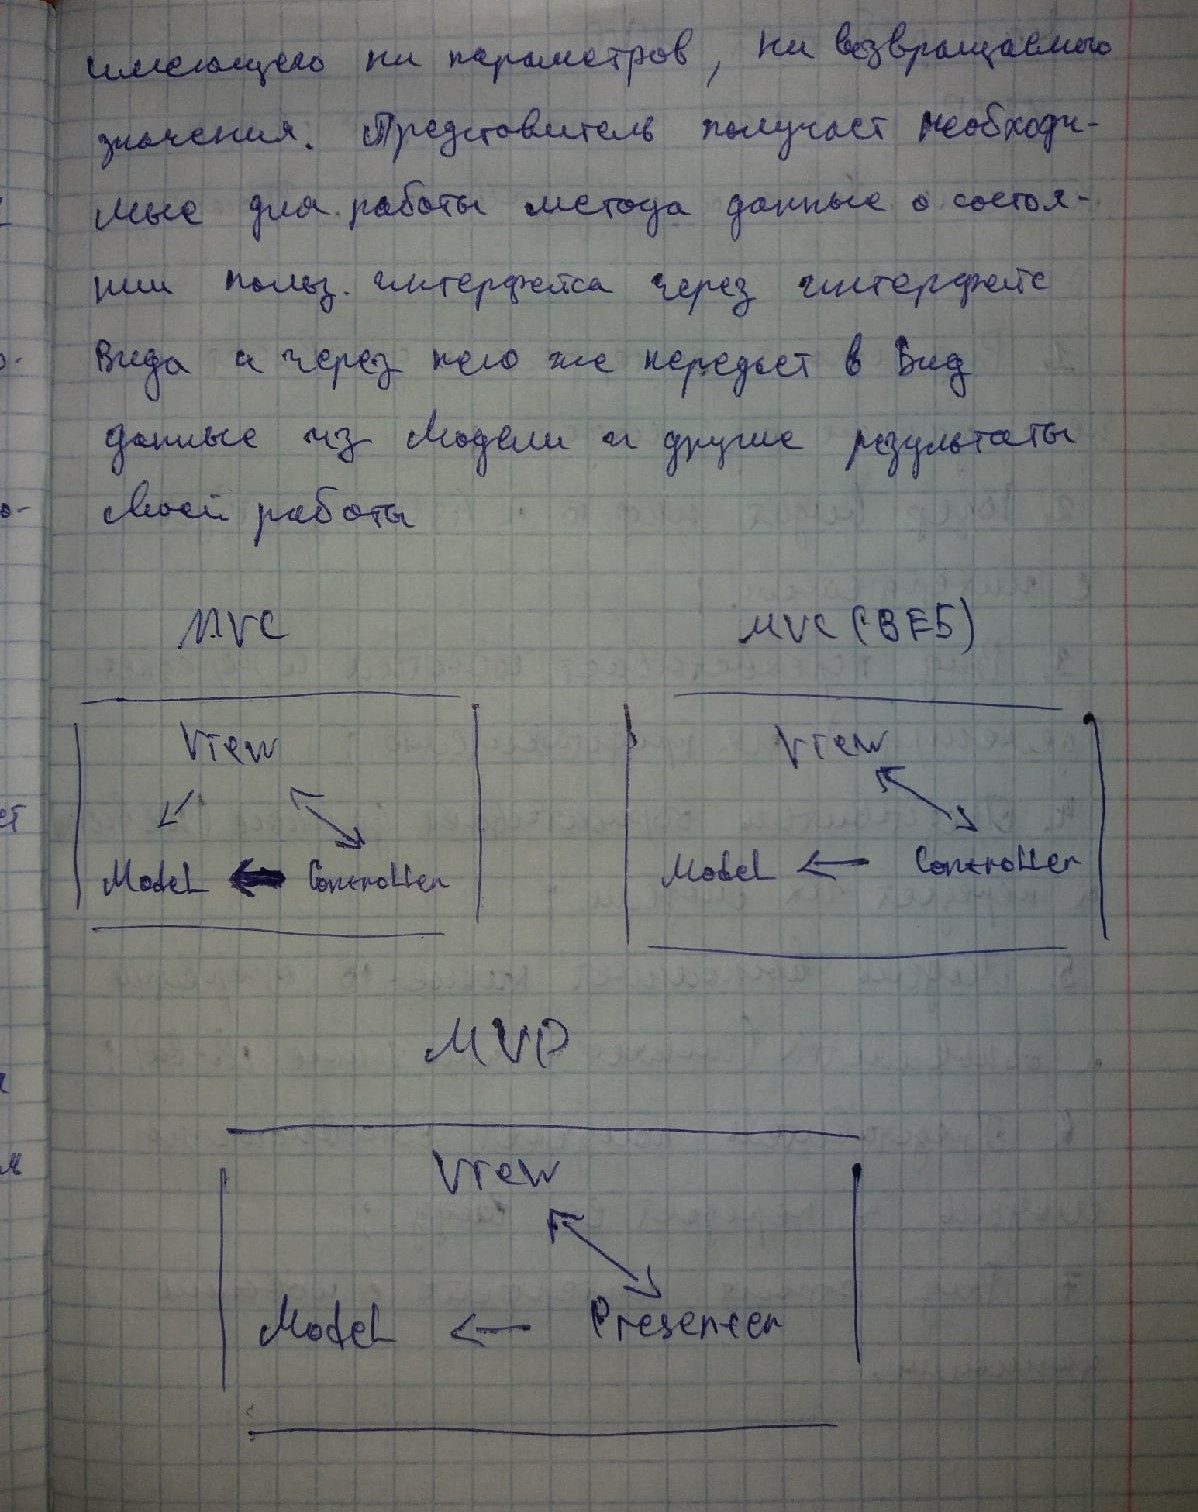 имеющего ни параметров, ни возвращаемого
значения. Представитель получает необходи-
мые для работы метода данные о состоя-
нии польз. интерфейса через интерфейс
Вида и через него же передает в Вид
данные из Модели и другие результаты
своей работы
MVC
MVC (BE5)
View
View
Model
Controller
Model
Controller
MVP
View
Model
Presenter